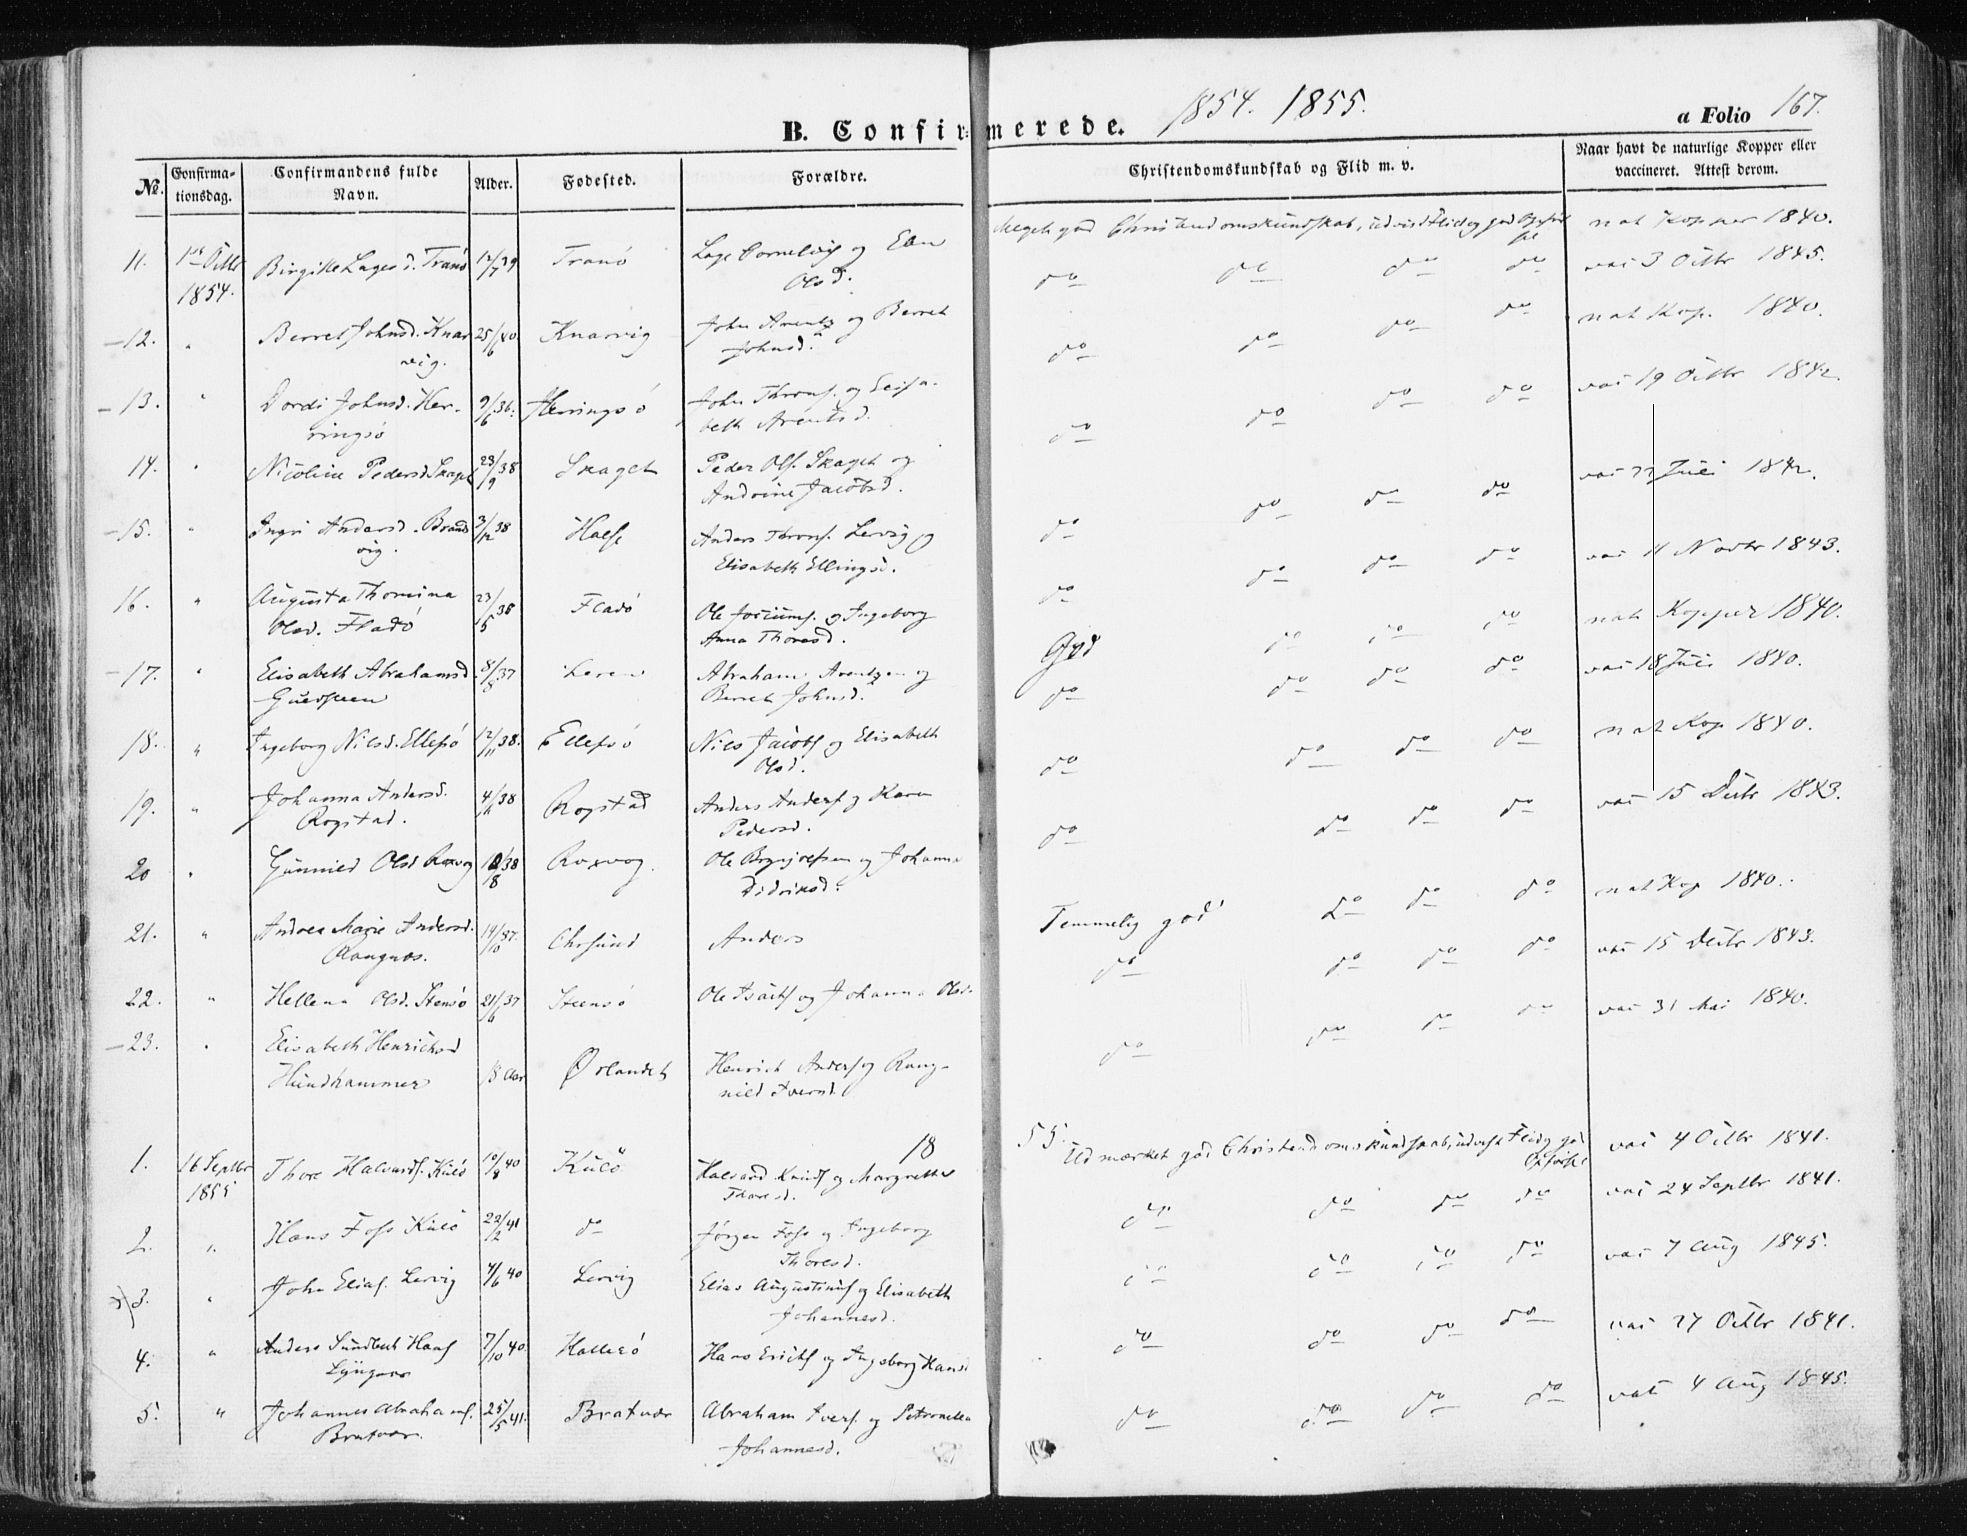 B. Confirmerede. 1854. 1855. a Folio 167.
№. Confirmationsdag. Confirmandens fulde Navn. Alder. Fødested. Forældre. Christendomskundskab og Flid m. v. Naar havt de naturlige Kopper eller vaccineret. Attest derom.
Meget god Christendomskundskab, udvist Flid og god Opførsel nat Kopper 1840.
11. 1st Octbr 1854. Birgitte Lagesd. Tranö 12/7 39 Tranö Lage Corneliuss og Elen Olsd. do do do do vac 3 Octbr 1845.
12. " Berret Johnsd. Knarvig. 25/6 40. Knarvig John Arentz og Berret Johnsd. do do do do nat Kop. 1840.
13. " Dordi Johnsd. Herringsö 9/6 36. Herringsö John Throns. og Elisabeth Arentsd. do do do do vac 19 Octbr 1842.
14. " Nicoline Pedersd. Skaget 23/9 38 Skaget Peder Ols. Skaget og Andrine Jacobsd. do do do do vac 22 Juli 1842.
15. " Ingri Andersd. Brandvig. 3/12 38 Halse Anders Throns. Lervig og Elisabeth Ellingsd. do do do do vac 11 Novbr 1843.
16. " Augusta Thomina Olsd. Fladö 23/5 38 Fladö Ole Jociums. og Ingeborg Anna Thoresd. God do do do nat Kopper 1840.
17. " Elisabeth Abrahamsd 8/8 37 Abraham Arentzen og Berret Johnsd. do do do do vac 18 Juli 1840.
18. " Ingeborg Nilsd. Ellefsö 12/11 38. Ellefsö Nils Jacobs og Elisabeth Olsd. do do do do nat Kop 1840.
19. " Johanna Andersd. Rogstad. 4/11 38 Rogstad Anders Anders og Karen Pedersd. do do do do vac 15 Decbr 1843.
20 " Gunnild Olsd Roxvog /8 38 Roxvog. Ole og Johanna Didriksd. Temmelig god do do do nat Kop 1840.
21. " Andrea Marie Andersd. Rangnæs. 14/10 37. Chrsund Anders do do do do vac 15 Decbr 1843.
22. " Hellena Olsd. Stensö 21/6 37 Steensö Ole Isachs og Johanna Olsd. do do do do vac 31 Mai 1840.
23. " Elisabeth Henrichsd Hundhammer 18 Aar Ørlandet Henrich Anders og Rangnild Iversd.
1855.
1. 16 Septbr 1855 Thore Halvards. Kulö 10/8 40 Kulö Halvard Knuds og Margrethe Thoresd. Udmærket god Christendomskundskab, udvist Flid og god Opførsel vac 4 Octbr 1841.
2. " Hans Foss Kulö 22/2 41 do Jørgen Foss og Ingeborg Thoresd. do do do do vac 24 Septbr 1841.
3. " John Elias. Lervig 4/6 40 Lervig Elias Augustinus og Elisabeth Johannesd. do do do do vac 7 Aug 1845.
4. " Anders Sundbeck Haas 7/10 40 Hallerö Hans Erichs og Ingeborg Hansd do do do do vac 27 Octbr 1841.
5. " Johannes Abrahams. Bratvær. 25/5 41. Bratvær Abraham Ivers. og Petronella Johannesd. do do do do vac 4 Aug 1845.